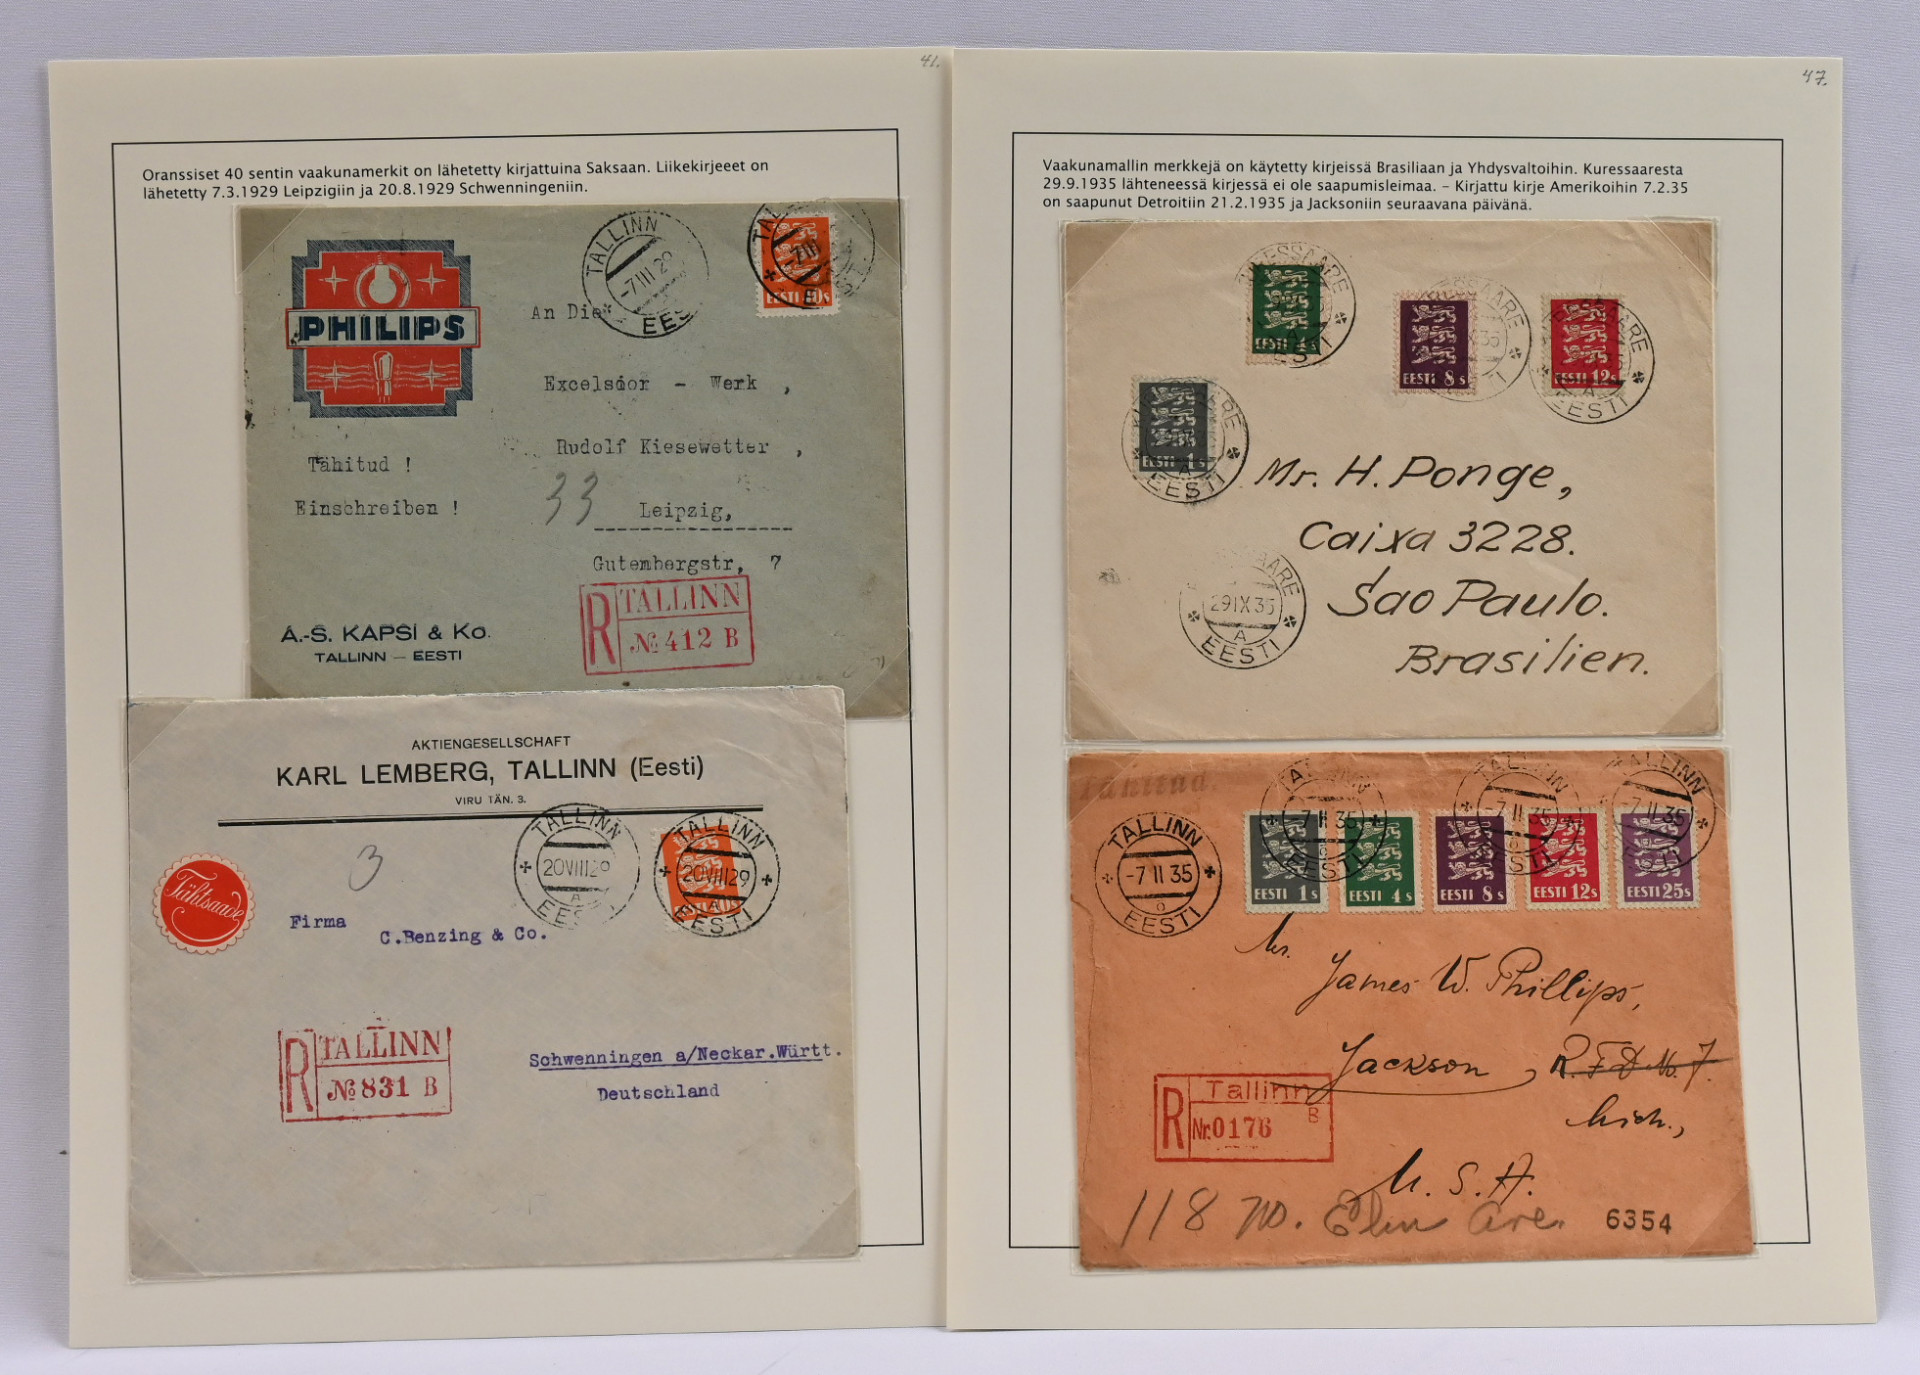 41.
Oranssiset 40 sentin vaakunamerkit on lähetetty kirjattuina Saksaan. Liikekirjeeet on
lähetetty 7.3.1929 Leipzigiin ja 20.8.1929 Schwenningeniin.
PHILIPS
TALLINN
-7 III 29
EESTI
EESTI 40s
An Die
Excelsior - Werk ,
Rudolf Kiesewetter ,
Tähitud !
33
Einschreiben !
Leipzig,
Gutembergstr, 7
R TALLINN
№ 412 B
A.-S. KAPSI & Ko.
TALLINN — EESTI
AKTIENGESELLSCHAFT
KARL LEMBERG, TALLINN (Eesti)
VIRU TÄN. 3.
TALLINN
20 VIII 29
A
EESTI
TALLINN
20 VIII 29
A
EESTI
3
Firma
C.Benzing & Co.
R TALLINN
№ 831 B
Schwenningen a/Neckar.Württ.
Deutschland
47.
Vaakunamallin merkkejä on käytetty kirjeissä Brasiliaan ja Yhdysvaltoihin. Kuressaaresta
29.9.1935 lähteneessä kirjessä ei ole saapumisleimaa. – Kirjattu kirje Amerikoihin 7.2.35
on saapunut Detroitiin 21.2.1935 ja Jacksoniin seuraavana päivänä.
EESTI 4s
EESTI 8s
EESTI 12s
EESTI 1s
EESTI
Mr. H. Ponge,
Caixa 3228.
Sao Paulo.
Brasilien.
29 IX 35
A
EESTI
Tähitud.
TALLINN
-7 II 35
EESTI
TALLINN
-7 II 35
EESTI
TALLINN
-7 II 35
EESTI
TALLINN
-7 II 35
EESTI 1s
EESTI 4s
EESTI 8s
EESTI 12s
EESTI 25s
Mr.
James W. Phillips,
Jackson, R.F.D. No. 7.
Mich.,
U. S. A.
R Tallinn
B
Nr. 0176
118 No. Elm Ave.
6354